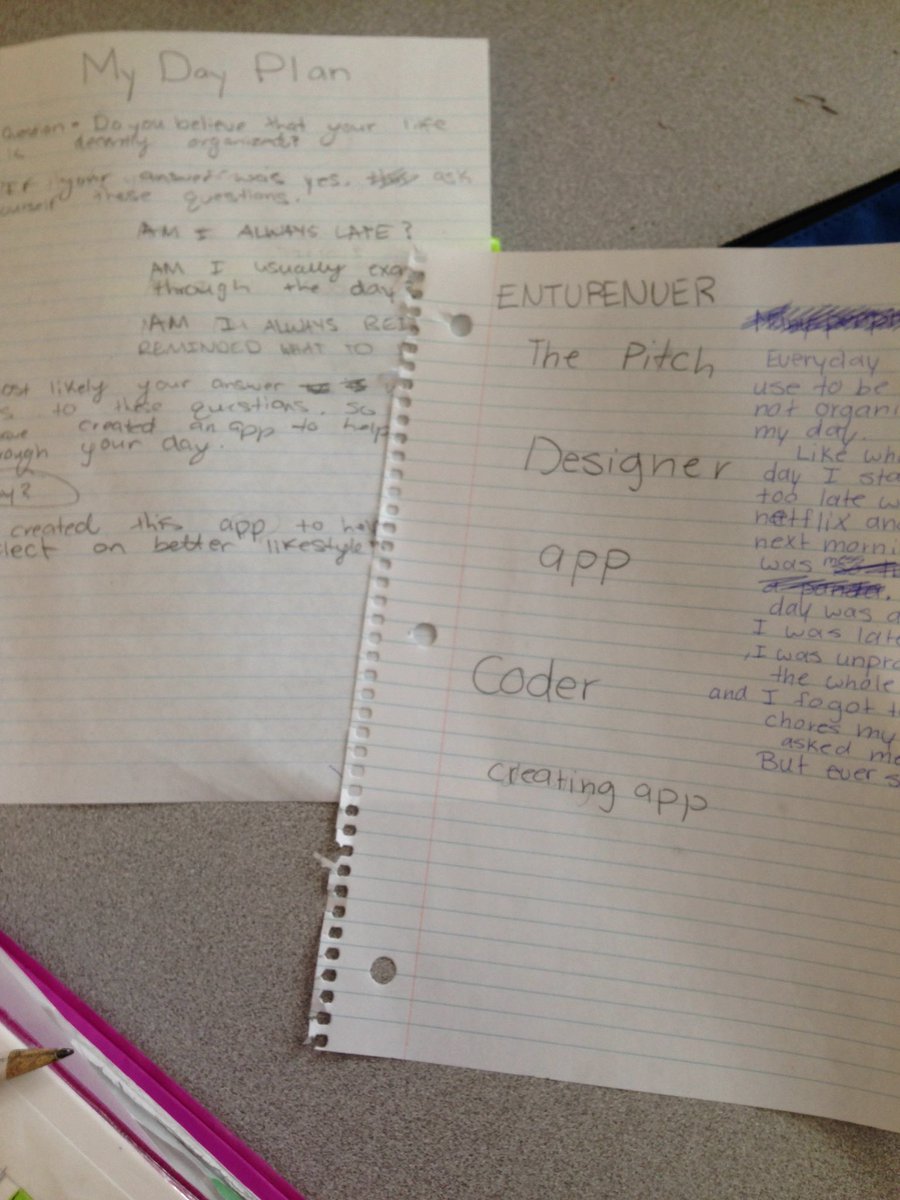 My Day Plan
Do you believe that your life
is decently organized?
If your answer was yes. ask
ourself these questions.
AM I ALWAYS LATE?
AM I usually exa
through the day
AM I ALWAYS BEI
REMINDED WHAT TO
ost likely your answer
s to these questions. So
ave created an app to help
rough your day.
ay?
created this app to hel
lect on better likestyle
ENTUPENUER
The Pitch
Designer
app
Coder
creating app
Everyday
use to be
not organi
my day.
Like wh
day I sta
too late w
netflix an
next morni
was
day was a
I was late
I was unpr
the whole
and I fogot t
chores my
asked me
But ever s